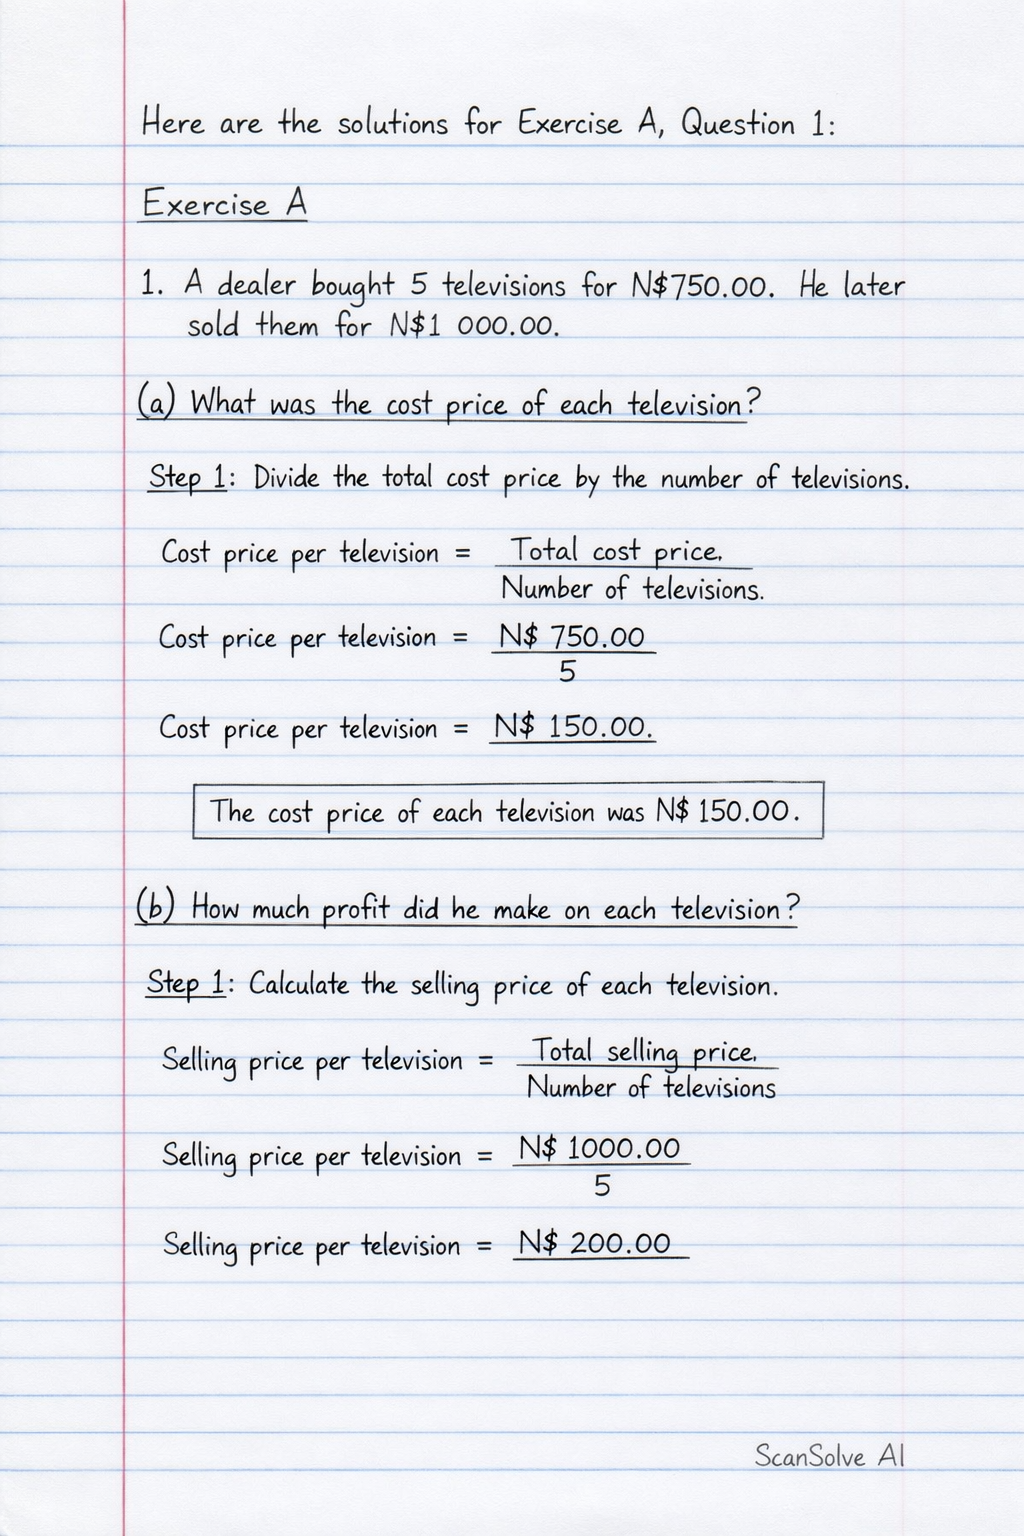 Here are the solutions for Exercise A, Question 1:
Exercise A
1. A dealer bought 5 televisions for N$750.00. He later
sold them for N$1 000.00.
(a) What was the cost price of each television?
Step 1: Divide the total cost price by the number of televisions.
Cost price per television = Total cost price.
Number of televisions.
Cost price per television = N$ 750.00
5
Cost price per television = N$ 150.00.
The cost price of each television was N$ 150.00.
(b) How much profit did he make on each television?
Step 1: Calculate the selling price of each television.
Selling price per television = Total selling price.
Number of televisions
Selling price per television = N$ 1000.00
5
Selling price per television = N$ 200.00
ScanSolve AI